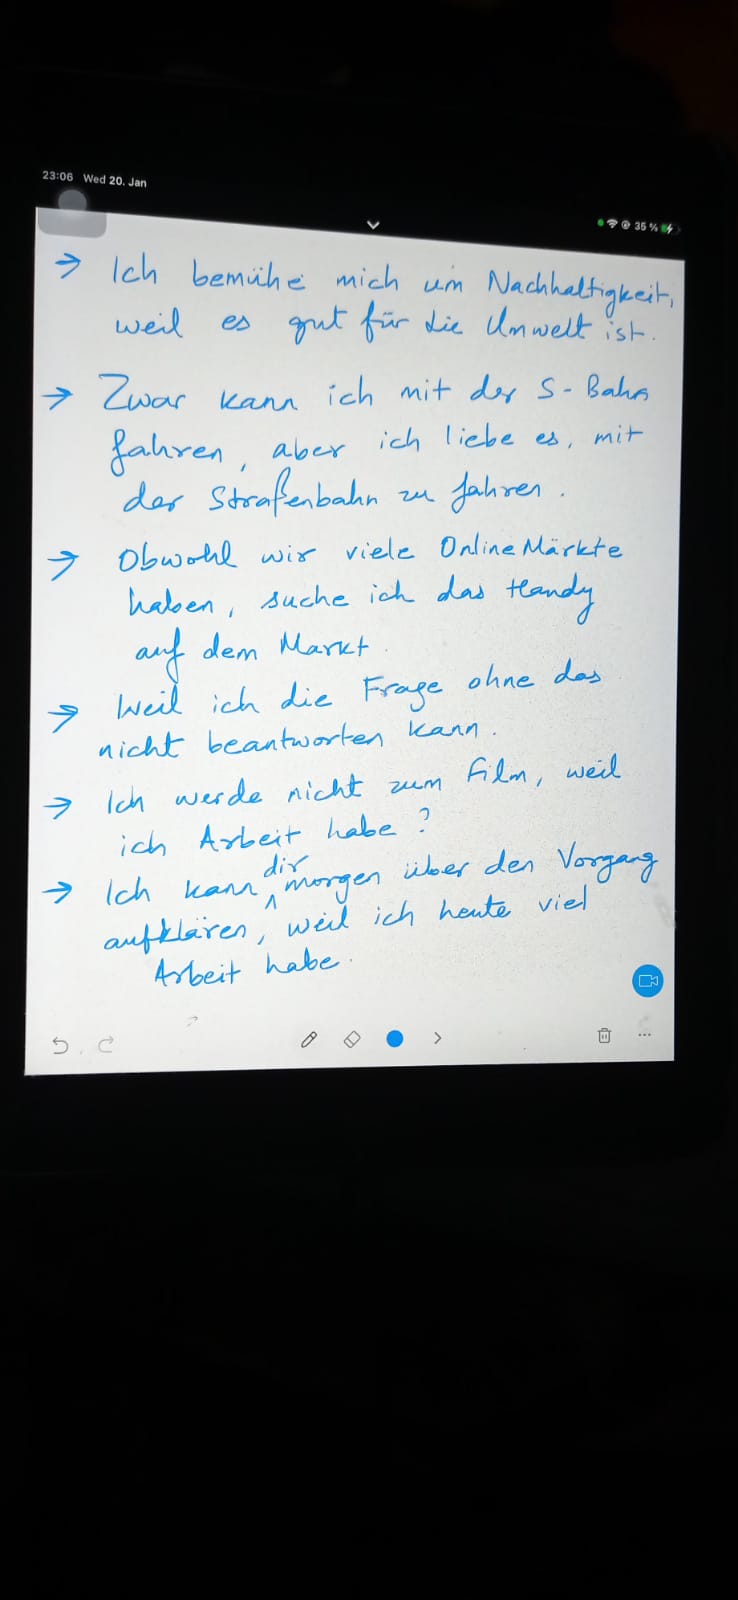 23:06 Wed 20. Jan
35 %
→ Ich bemühe mich um Nachhaltigkeit,
weil es gut für die Umwelt ist.
→ Zwar kann ich mit der S-Bahn
fahren, aber ich liebe es, mit
der Straßenbahn zu fahren.
→ Obwohl wir viele Online Märkte
haben, suche ich das Handy
auf dem Markt.
→ Weil ich die Frage ohne das
nicht beantworten kann.
→ Ich werde nicht zum Film, weil
ich Arbeit habe?
→ Ich kann dir morgen über den Vorgang
aufklären, weil ich heute viel
Arbeit habe.